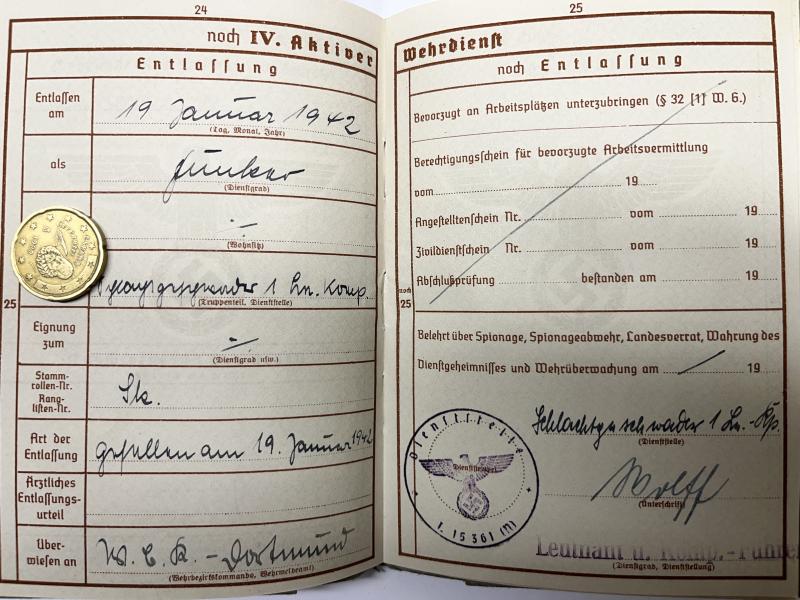 24
noch IV. Aktiver
Entlassung
Entlassen am
19 Januar 1942
(Tag, Monat, Jahr)
als
Funker
(Dienstgrad)
(Wohnsitz)
1 Ln. Komp.
(Truppenteil, Dienststelle)
25
Eignung zum
(Dienstgrad usw.)
Stamm-
rollen-Nr.
Rang-
listen-Nr.
Stk.
Art der
Entlassung
gefallen am 19. Januar 1942
Ärztliches
Entlassungs-
urteil
Über-
wiesen an
W. E. K. - Dortmund
(Wehrbezirkskommando, Wehrmeldeamt)
25
Wehrdienst
noch Entlassung
Bevorzugt an Arbeitsplätzen unterzubringen (§ 32 [1] W. G.)
Berechtigungsschein für bevorzugte Arbeitsvermittlung
vom 19
Angestelltenschein Nr. vom 19
Zivildienstschein Nr. vom 19
Abschlußprüfung bestanden am 19
noch
25
Belehrt über Spionage, Spionageabwehr, Landesverrat, Wahrung des
Dienstgeheimnisses und Wehrüberwachung am 19
Schlachtgeschwader 1 Ln.-Kp.
(Dienststelle)
Dienststelle
Dienststempel
L 15361 (N)
Wolff
(Unterschrift)
Leutnant u. Komp.-Führer
(Dienstgrad, Dienststellung)